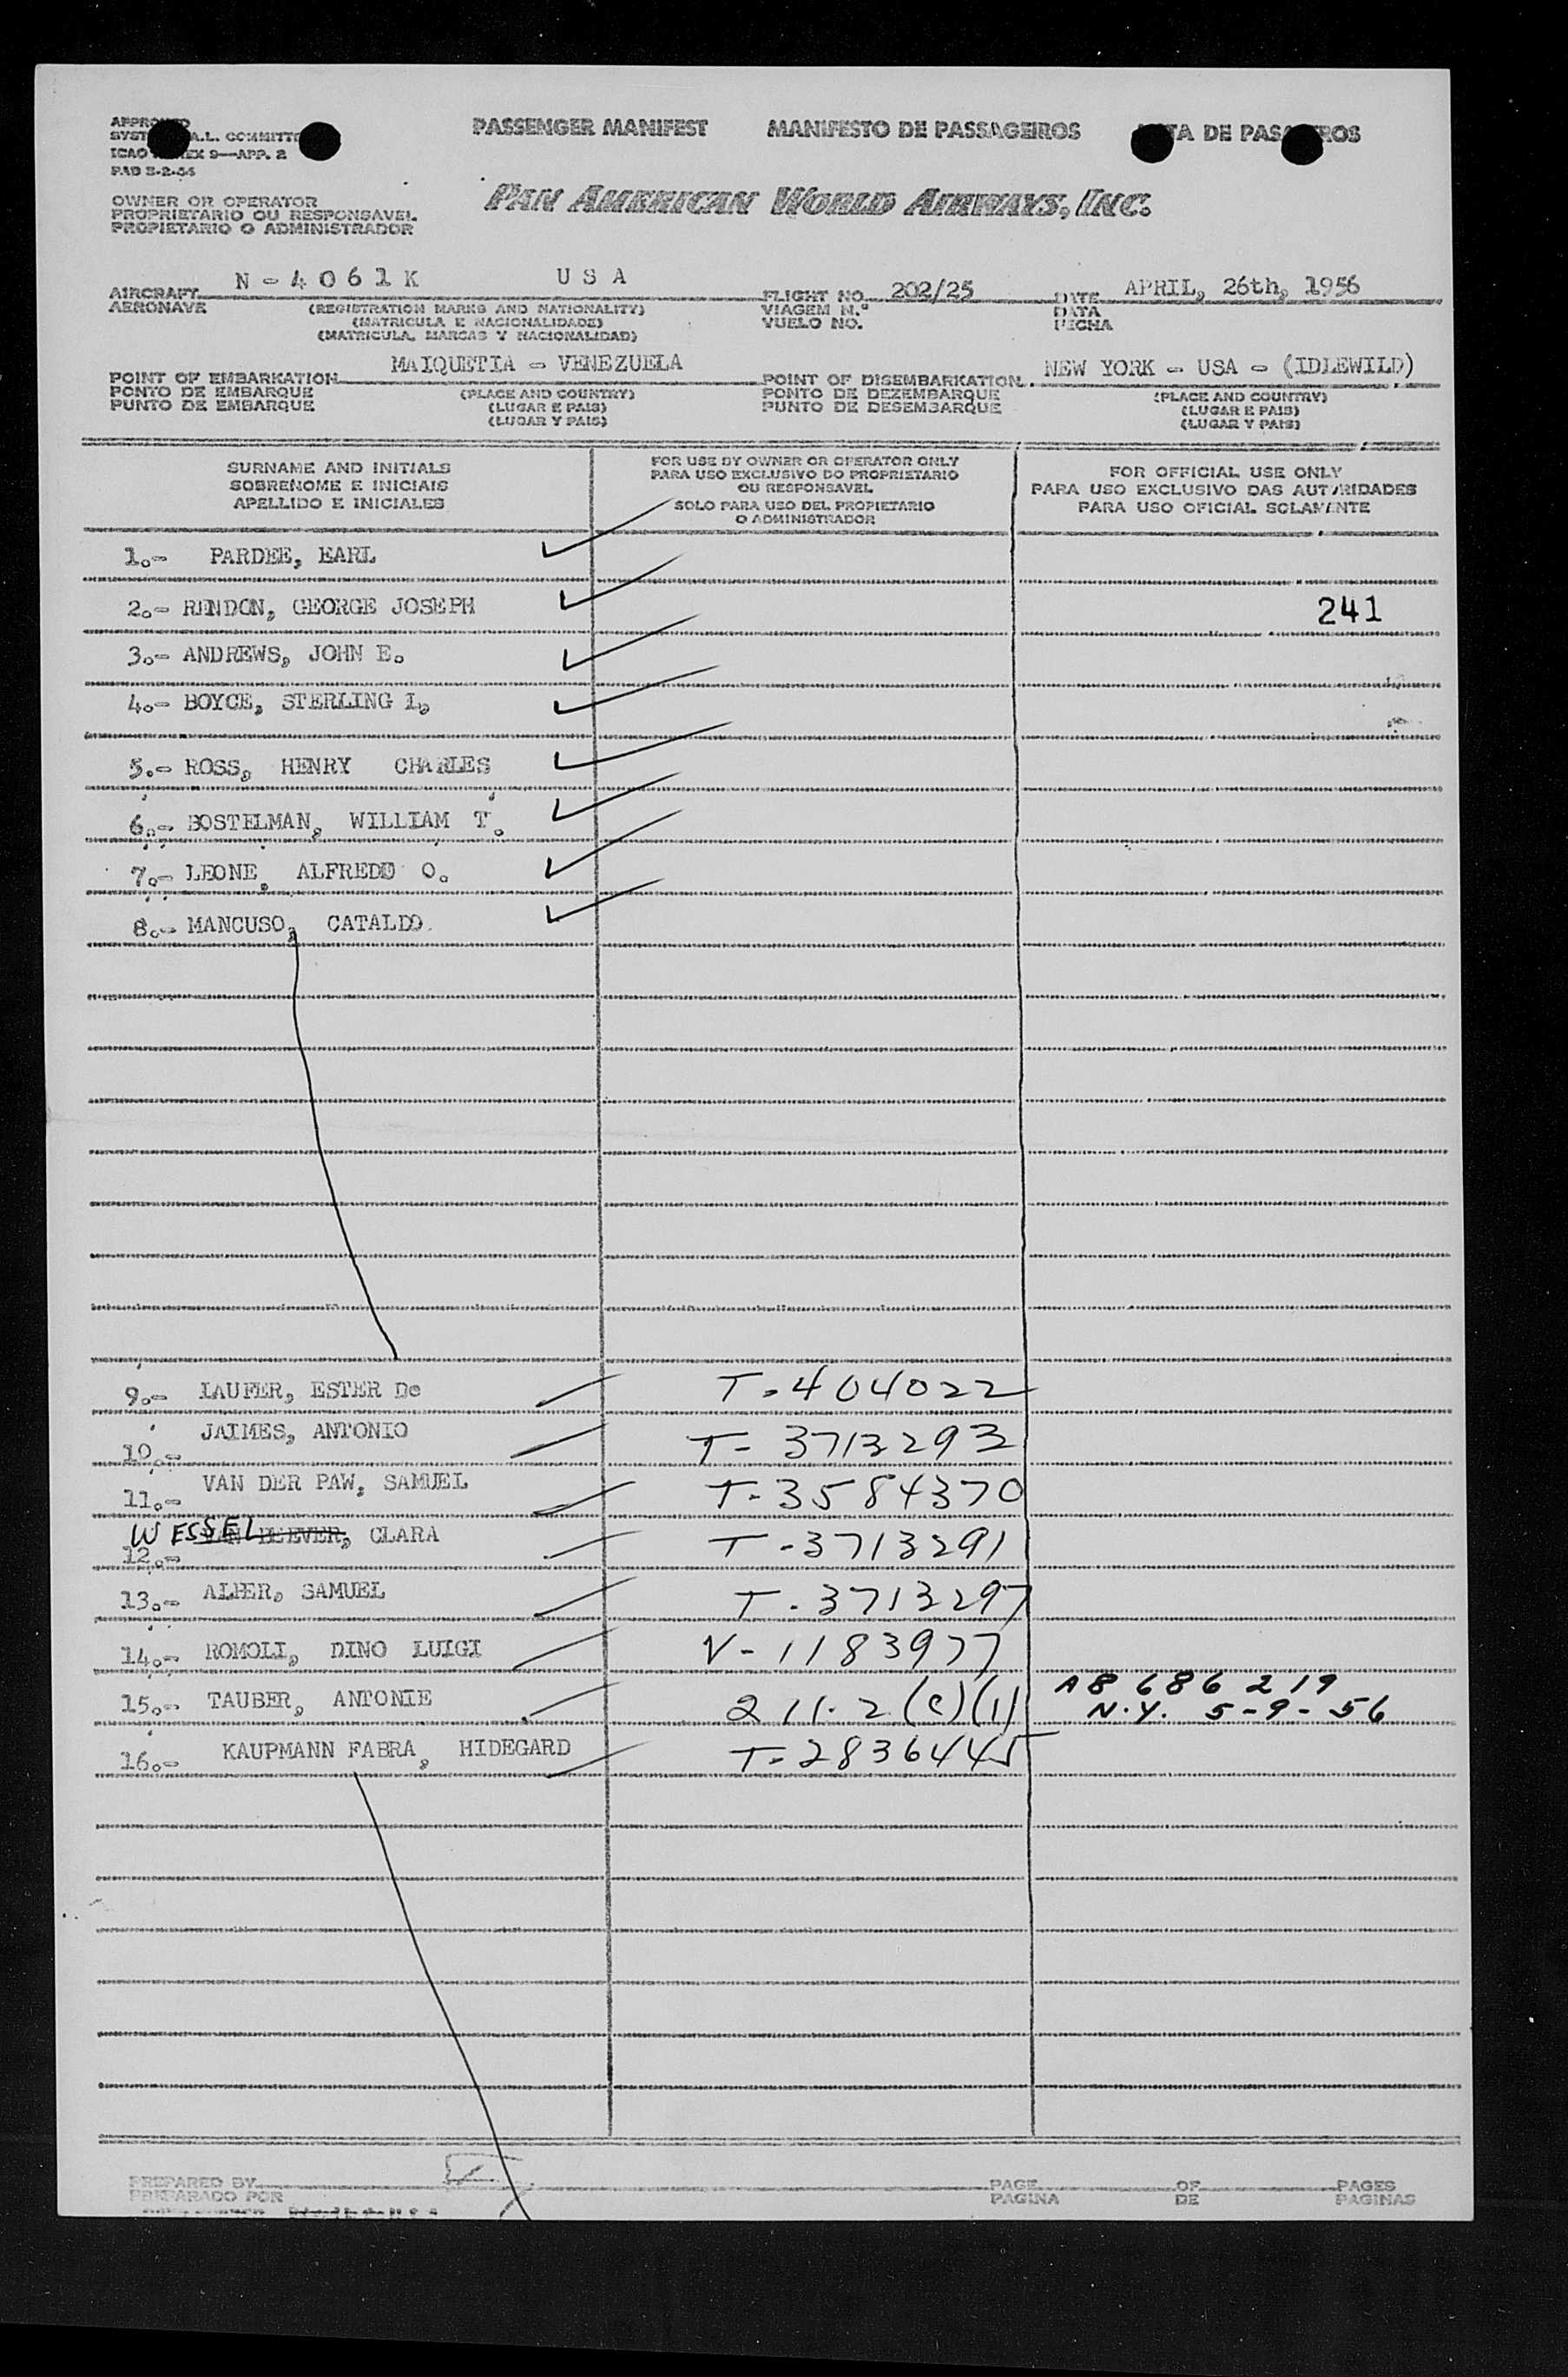 PASSENGER MANIFEST MANIFESTO DE PASSAGEIROS DE
A.L.
ICAO 9—APP. 2
OWNER OR OPERATOR
PROPRIETARIO OU RESPONSAVEL
PROPIETARIO O ADMINISTRADOR
PAN AMERICAN WORLD AIRWAYS, INC.
AIRCRAFT N - 4 0 6 1 K U S A FLIGHT NO. 202/25 DATE APRIL, 26th, 1956
AERONAVE (REGISTRATION MARKS AND NATIONALITY) VIAGEM N.º DATA
(MATRICULA E NACIONALIDADE) VUELO NO. FECHA
(MATRICULA, MARCAS Y NACIONALIDAD)
POINT OF EMBARKATION MAIQUETIA - VENEZUELA POINT OF DISEMBARKATION NEW YORK - USA - (IDLEWILD)
PONTO DE EMBARQUE (PLACE AND COUNTRY) PONTO DE DEZEMBARQUE (PLACE AND COUNTRY)
PUNTO DE EMBARQUE (LUGAR E PAIS) PUNTO DE DESEMBARQUE (LUGAR E PAIS)
(LUGAR Y PAIS) (LUGAR Y PAIS)
SURNAME AND INITIALS
SOBRENOME E INICIAIS
APELLIDO E INICIALES
FOR USE BY OWNER OR OPERATOR ONLY
PARA USO EXCLUSIVO DO PROPRIETARIO
OU RESPONSAVEL
SOLO PARA USO DEL PROPIETARIO
O ADMINISTRADOR
FOR OFFICIAL USE ONLY
PARA USO EXCLUSIVO DAS AUTORIDADES
PARA USO OFICIAL SOLAMENTE
1.- PARDEE, EARL
2.- RENDON, GEORGE JOSEPH 241
3.- ANDREWS, JOHN E.
4.- BOYCE, STERLING L.
5.- ROSS, HENRY CHARLES
6.- BOSTELMAN, WILLIAM T.
7.- LEONE, ALFREDO O.
8.- MANCUSO, CATALDO
9.- LAUFER, ESTER De T-404022
10.- JAIMES, ANTONIO T- 3713293
11.- VAN DER PAW, SAMUEL T-3584370
12.- WESSEL CLARA T-3713291
13.- ALPER, SAMUEL T-3713297
14.- ROMOLI, DINO LUIGI V-1183977
15.- TAUBER, ANTONIE 211.2(c)(1) A8 686 219
N.Y. 5-9-56
16.- KAUPMANN FABRA, HIDEGARD T-2836445
PREPARED BY PAGE OF PAGES
PREPARADO POR PAGINA DE PAGINAS